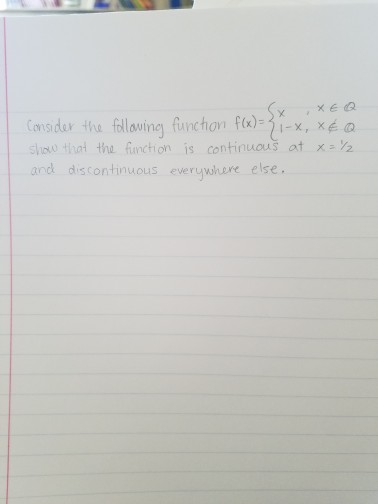 Consider the following function f(x)= { x , x ∈ Q
1-x, x ∉ Q
show that the function is continuous at x = 1/2
and discontinuous everywhere else.